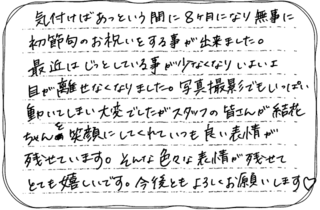 気付けばあっという間に8ヶ月になり無事に
初節句のお祝いをする事が出来ました。
最近はじっとしている事が少なくなりいよいよ
目が離せなくなりました。写真撮影でもいっぱい
動いてしまい大変でしたがスタッフの皆さんが結花
ちゃんを笑顔にしてくれていつも良い表情が
残せています。そんな色々な表情が残せて
とても嬉しいです。今後ともよろしくお願いします♡